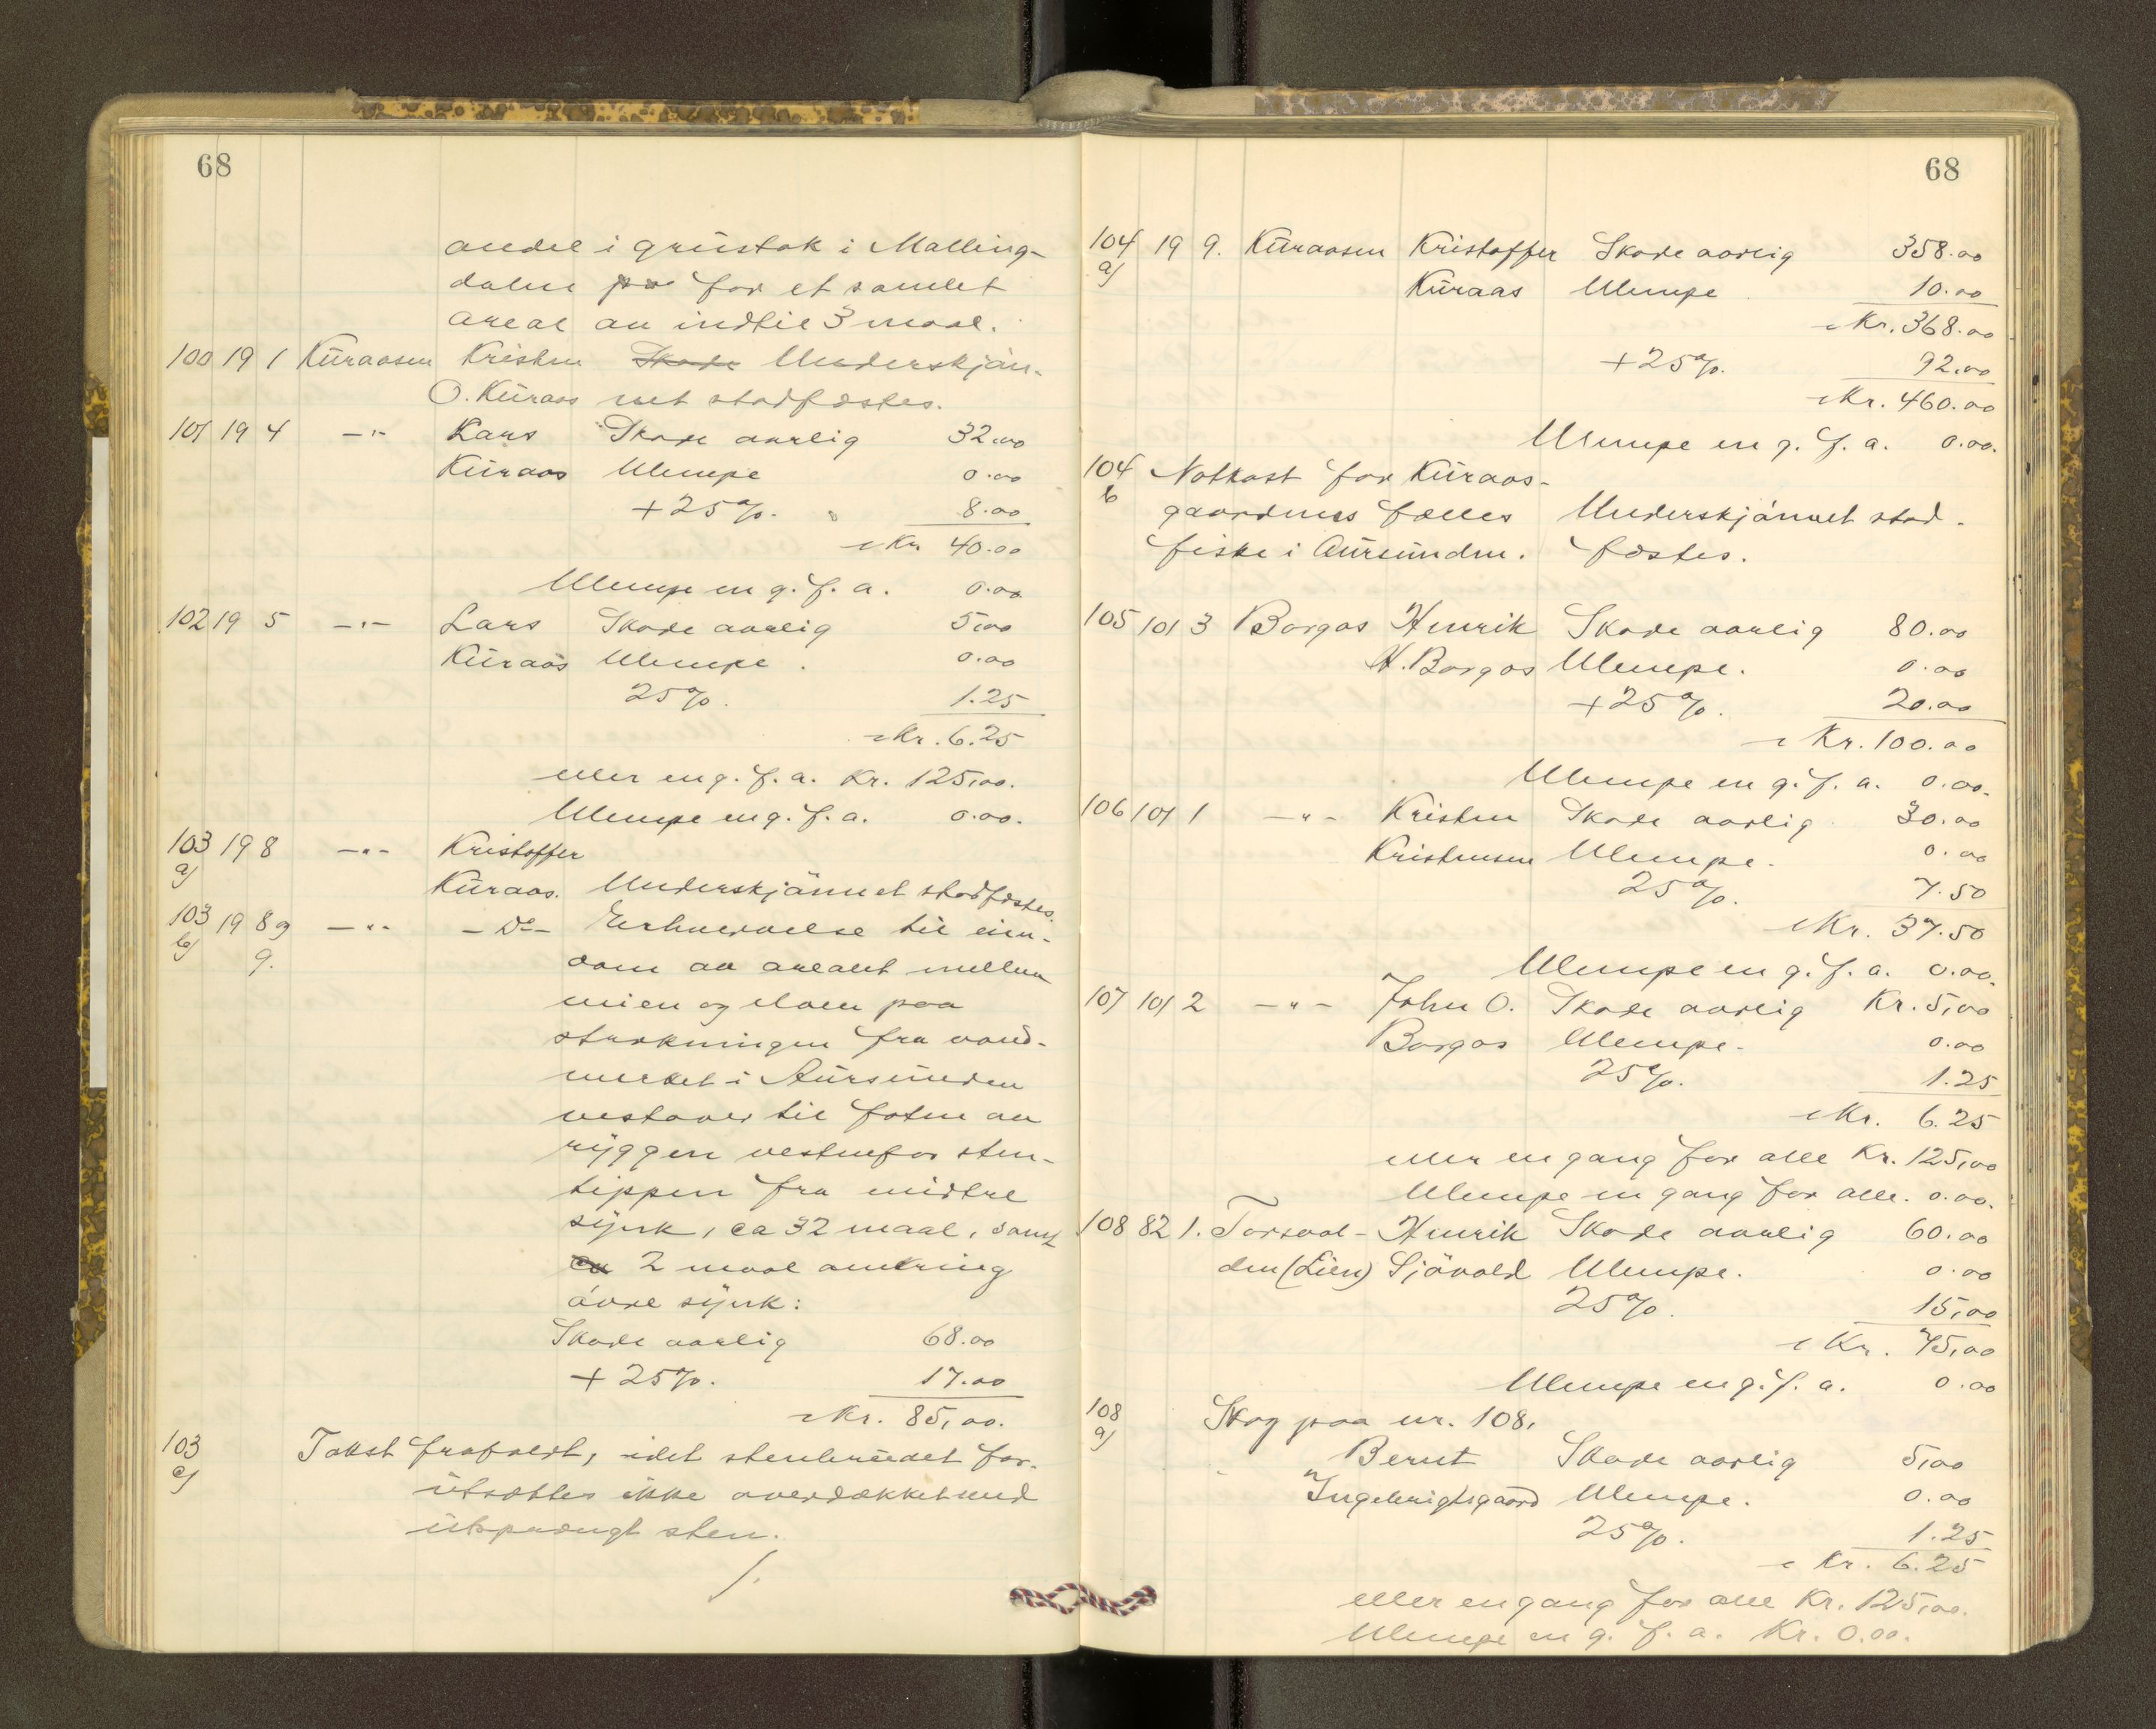 68
andel i grustak i Malling-
dalen for et samlet
areal av indtil 3 maal.
100 19 1 Kuraasen Kristen Skade Underskjön-
O. Kuraas net stadfæstes.
101 19 4 -"- Lars Skade aarlig 32.00
Kuraas Ulempe 0.00
+ 25 % 8.00
Kr. 40.00
Ulempe en g. f. a. 0.00
102 19 5 -"- Lars Skade aarlig 5,00
Kuraas Ulempe. 0.00
25 %. 1.25
Kr. 6.25
eller en g. f. a. Kr. 125,00.
Ulempe en g. f. a. 0.00.
103 19 8 -"- Kristoffer
a) Kuraas. Underskjönnet stadfæstes.
103 19 8 og -"- - Do - Erhvervelse til eien-
b) 9. dom av arealet mellem
veien og elven paa
strækningen fra vand-
merket i Aursunden
vestover til foten av
ryggen vestenfor sten-
tippen fra midtre
synk, ca 32 maal, samt
ca 2 maal omkring
övre synk:
Skade aarlig 68.00
+ 25 %. 17.00
Kr. 85,00.
103 Takst frafaldt, idet stenbruddet for-
c) utsættes ikke overdækket med
utsprængt sten.
/.
68
104 19 9. Kuraasen Kristoffer Skade aarlig 358.00
a) Kuraas Ulempe 10.00
Kr. 368.00
+ 25 %. 92.00
Kr. 460.00
Ulempe en g. f. a. 0.00.
104 Notkast for Kuraas-
b gaardenes fælles Underskjönnet stad-
fiske i Aursunden. fæstes.
105 101 3 Borgos Henrik Skade aarlig 80.00
H. Borgos Ulempe. 0.00
+ 25 %. 20.00
Kr. 100.00
Ulempe en g. f. a. 0.00.
106 101 1 -"- Kristen Skade aarlig 30.00
Kristensen Ulempe. 0.00
25 %. 7.50
Kr. 37.50
Ulempe en g. f. a. 0.00.
107 101 2 -"- John O. Skade aarlig Kr. 5,00
Borgos Ulempe. 0.00
25 %. 1.25
Kr. 6.25
eller en gang for alle Kr. 125,00
Ulempe en gang for alle. 0.00.
108 82 1. Torsvol- Henrik Skade aarlig 60.00
den (Lien) Sjövold Ulempe. 0.00
25 %. 15,00
Kr. 75,00
Ulempe en g. f. a. 0.00
108 Skog paa nr. 108,
a) Bernt Skade aarlig 5,00
Ingebrigtsgaard Ulempe. 0.00
25 %. 1.25
Kr. 6.25
eller en gang for alle Kr. 125,00.
Ulempe en g. f. a. Kr. 0.00.